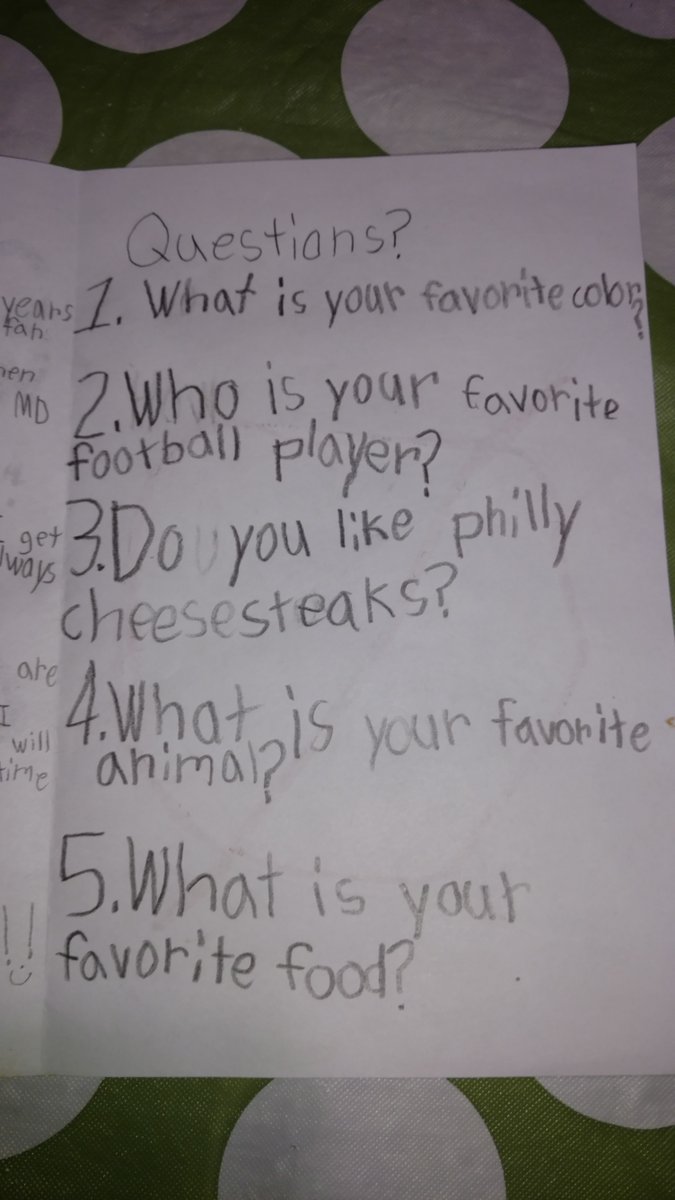 Questions?
1. What is your favorite color?
2. Who is your favorite
football player?
3. Do you like philly
cheesesteaks?
4. What is your favorite
animal?
5. What is your
favorite food?
years
fan
MD
get
are
I
will
time
!!
:)